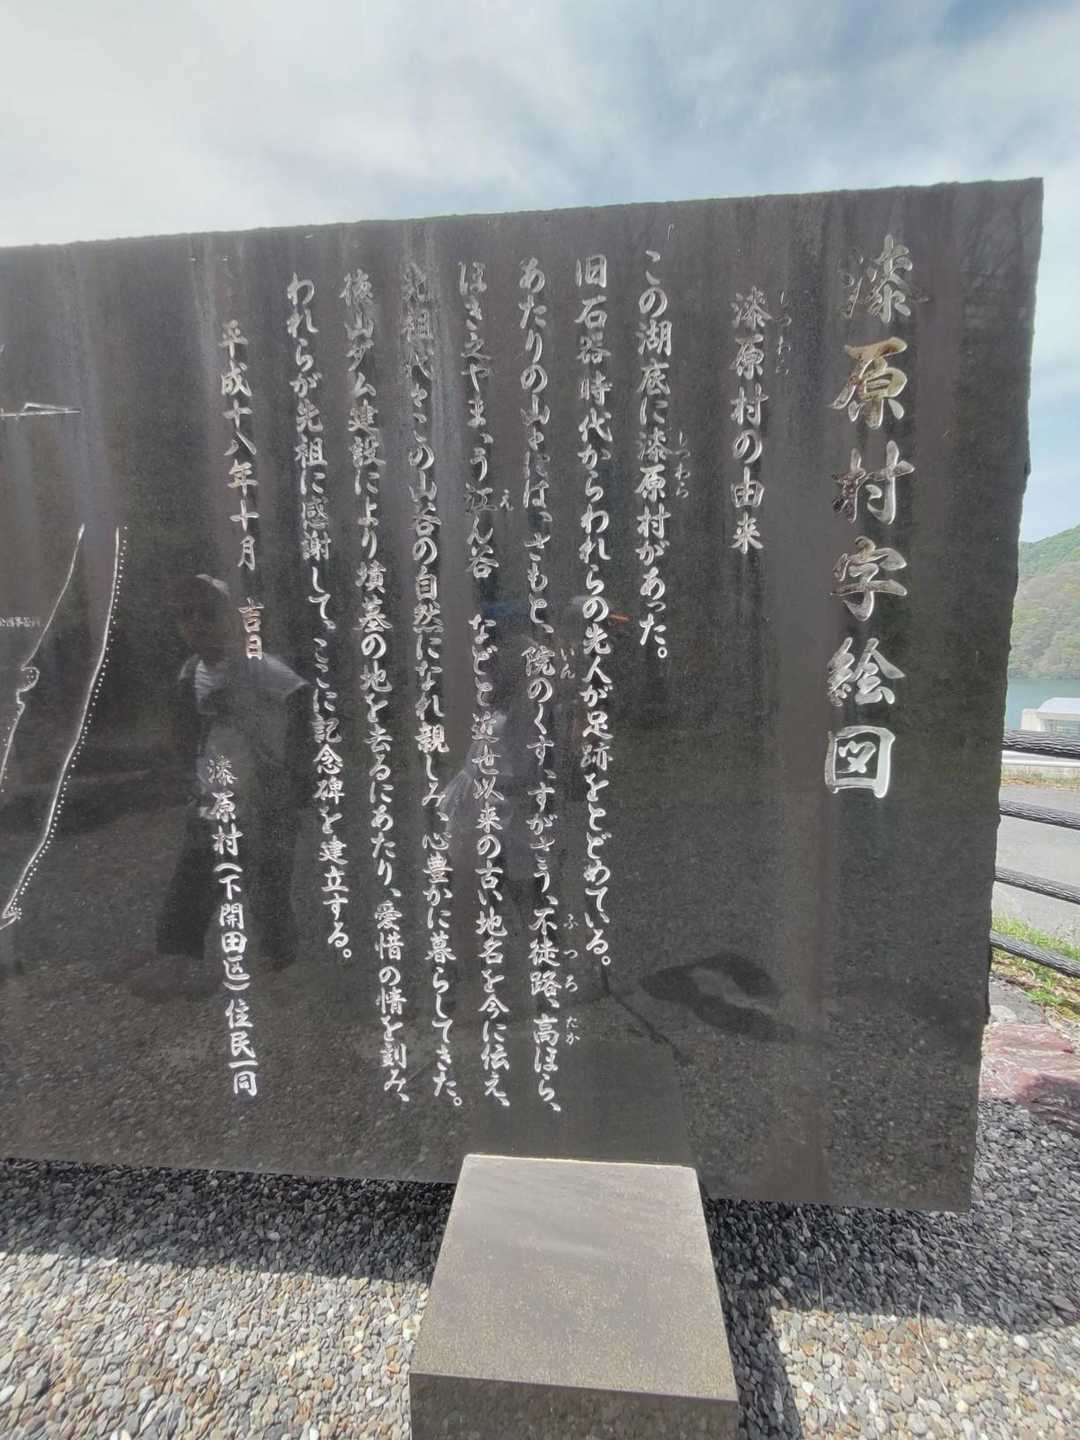 漆原村字絵図
漆原村の由来
この湖底に漆原村があった。
旧石器時代からわれらの先人が足跡をとどめている。
あたりの山々には、さもと、院のくす、すがぞう、不徒路、高ほら、
ほき之やま、う江ん谷　などと近世以来の古い地名を今に伝え、
先祖代々この山谷の自然になれ親しみ、心豊かに暮らしてきた。
徳山ダム建設により墳墓の地を去るにあたり、愛惜の情を刻み、
われらが先祖に感謝して、ここに記念碑を建立する。
平成十八年十月　吉日
漆原村（下開田区）住民一同